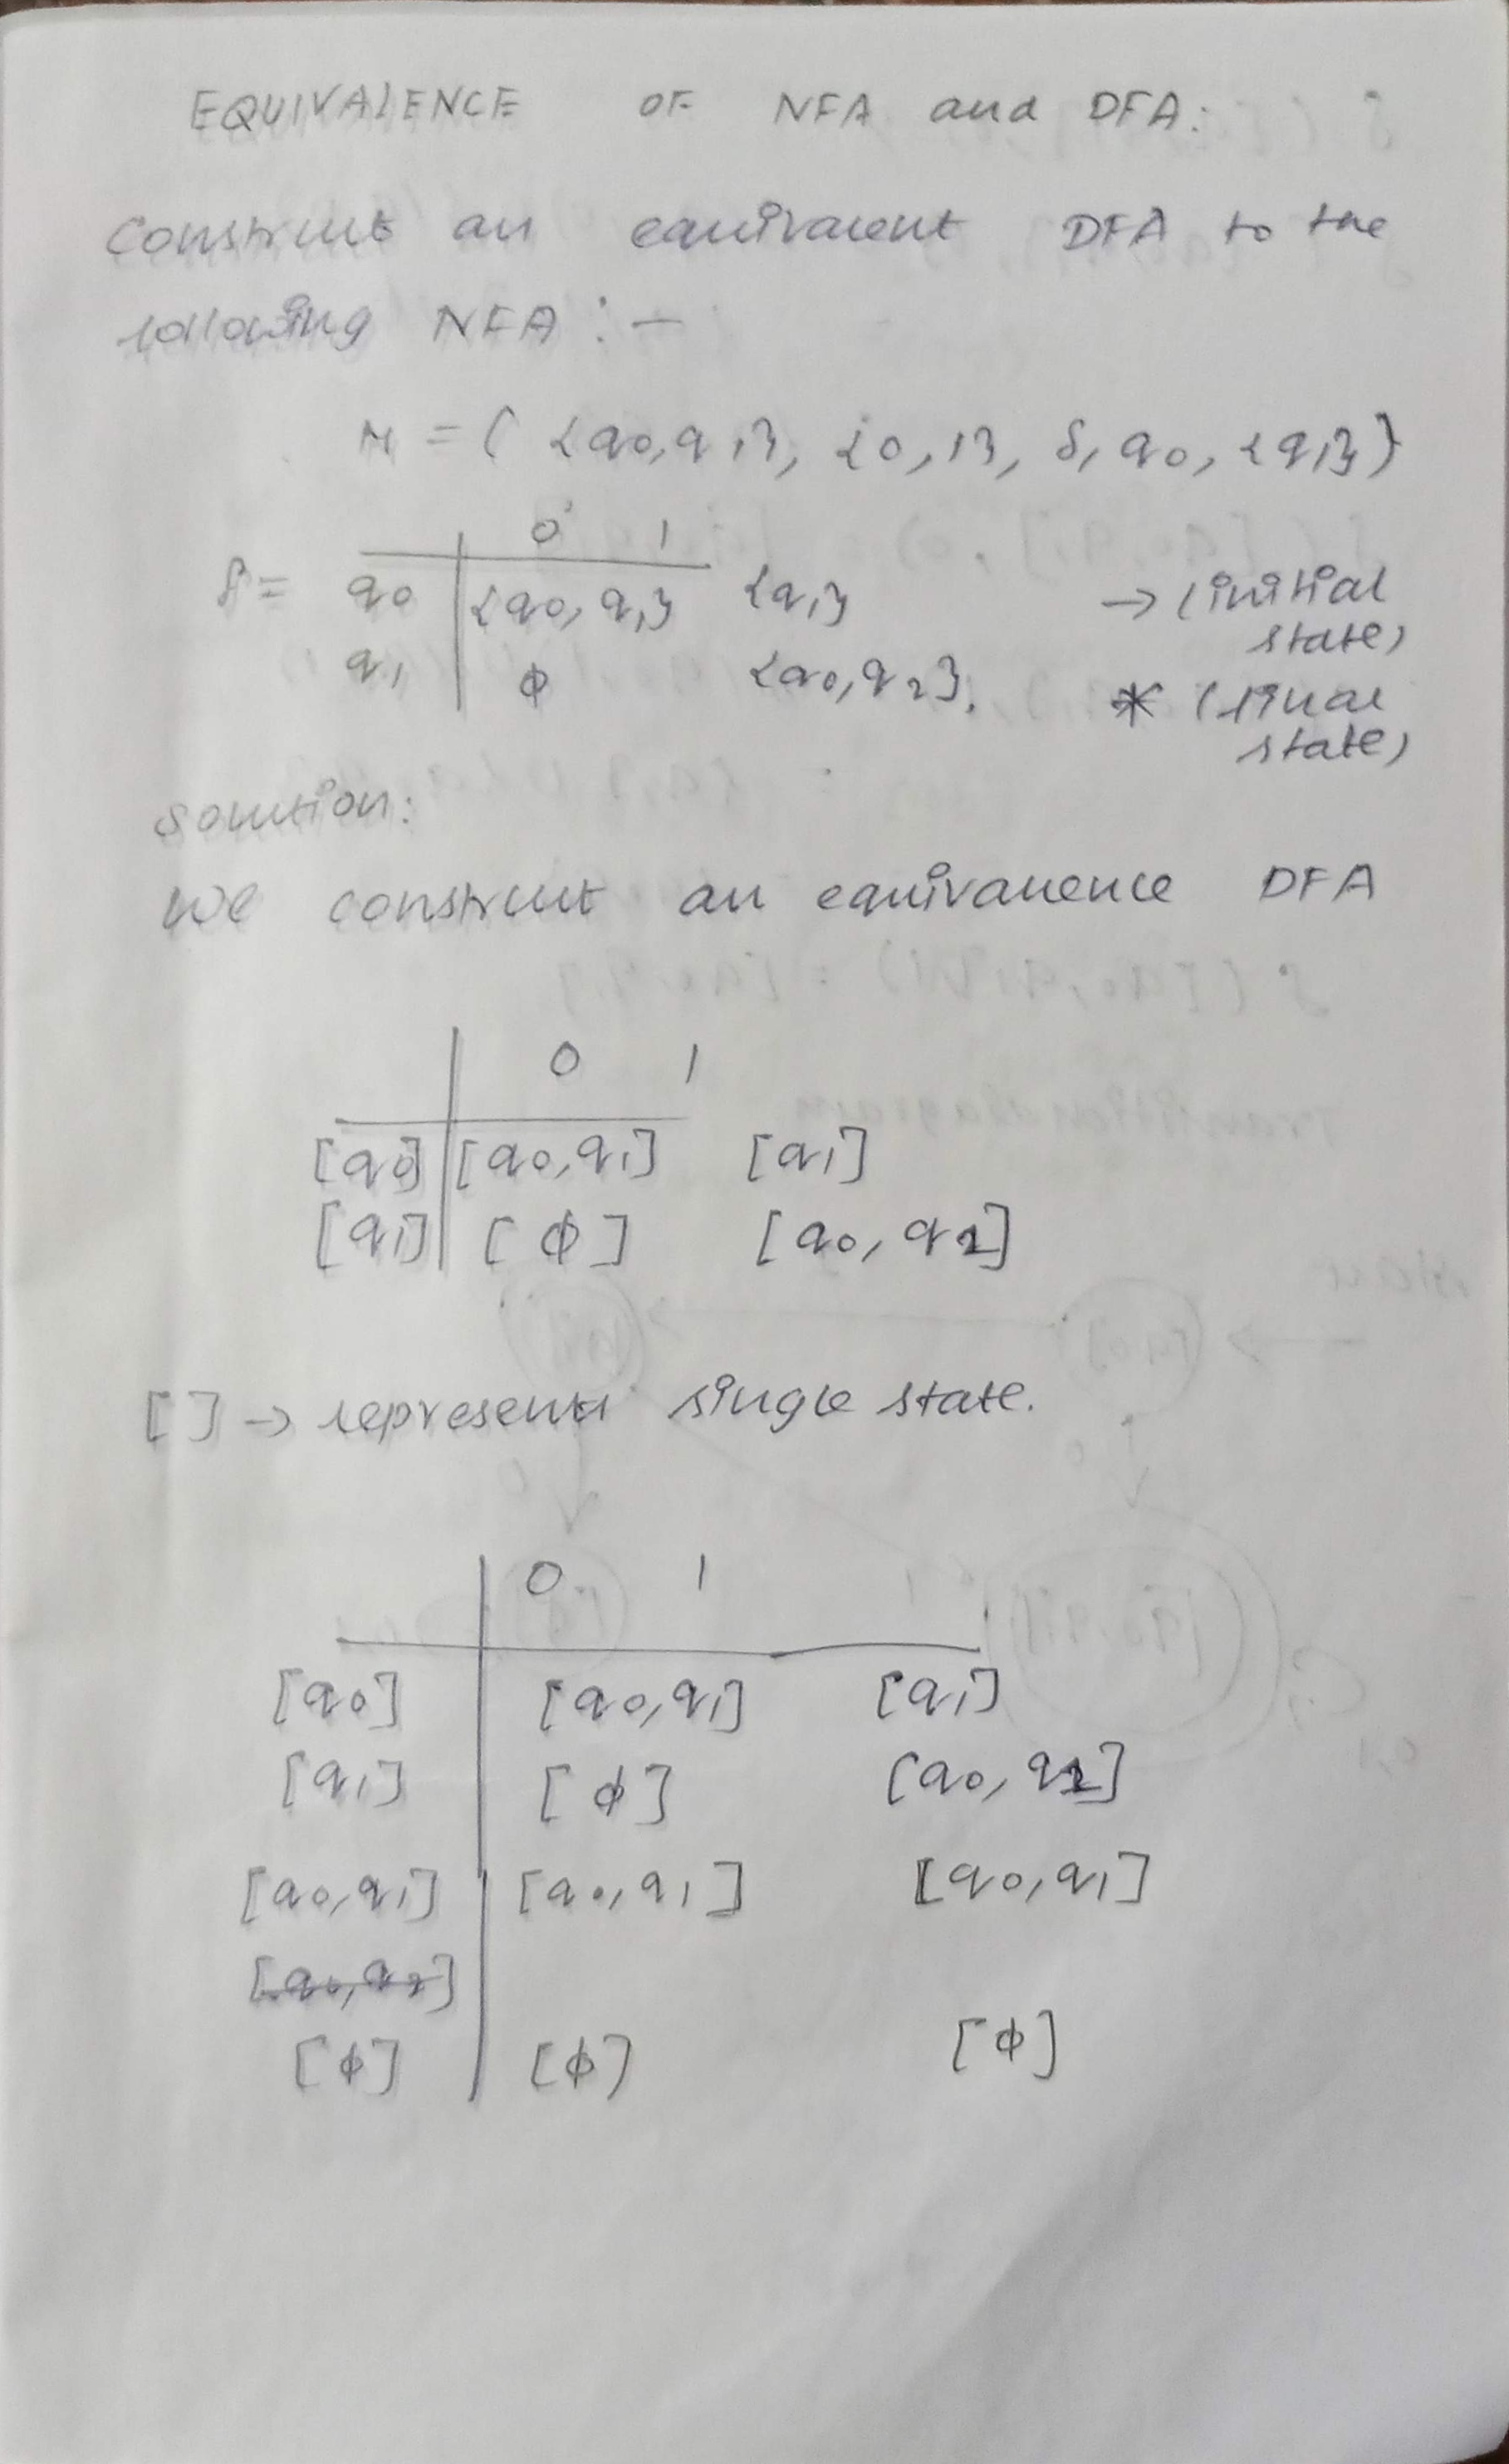 EQUIVALENCE OF NFA and DFA:
Construct an equivalent DFA to the
following NFA :-
M = ( {q0,q1}, {0,1}, δ, q0, {q1} )
0 1
δ = q0 {q0, q1} {q1} → (initial
state)
q1 ϕ {q0,q2}. * (final
state)
solution:
we construct an equivalence DFA
0 1
[q0] [q0,q1] [q1]
[q1] [ϕ] [q0, q1]
[ ] → represents single state.
0 1
[q0] [q0,q1] [q1]
[q1] [ϕ] [q0, q1]
[q0,q1] [q0,q1] [q0,q1]
[q0,q2]
[ϕ] [ϕ] [ϕ]